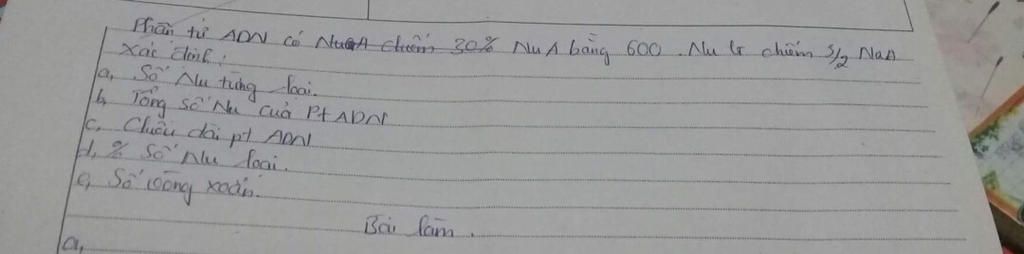 Phân tử ADN có NuA chiếm 30% Nu A bằng 600. Nu G chiếm 3/2 Nu A
Xác định:
a, Số Nu từng loại.
b, Tổng số Nu của Pt ADN
c, Chiều dài pt ADN
d, % Số Nu loại.
e, Số vòng xoắn.
Bài làm.
a,